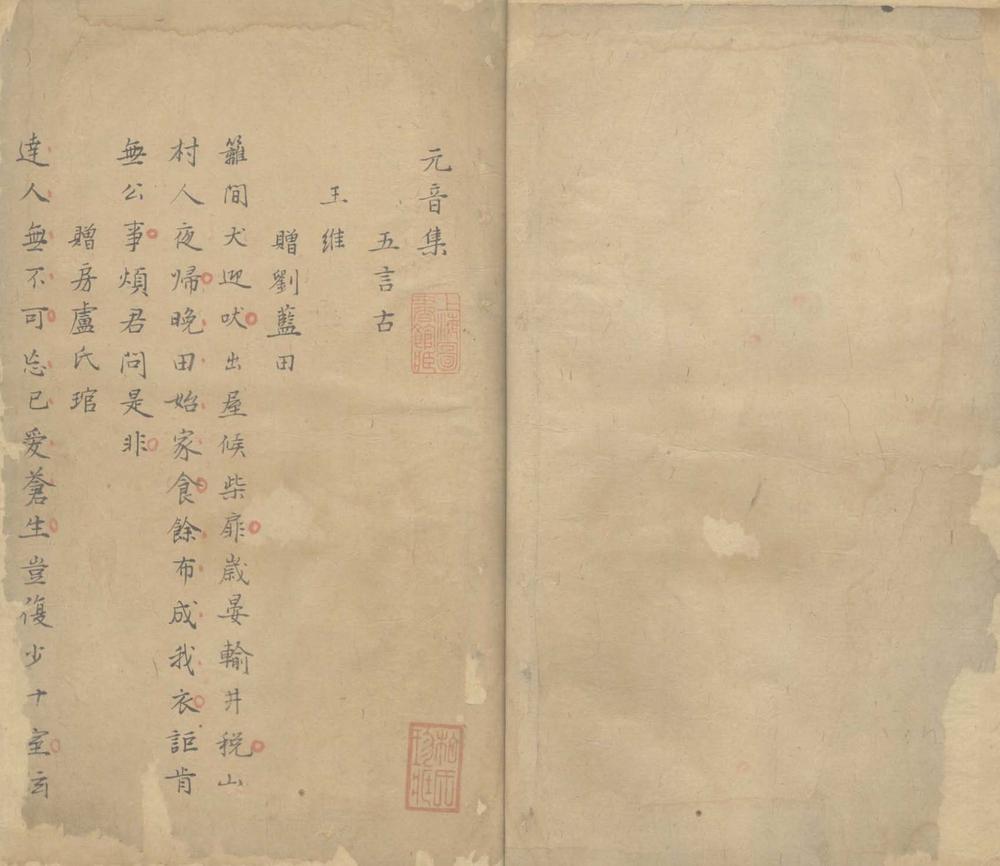 元音集
五言古
王維
贈劉藍田
籬間犬迎吠出屋候柴扉歲晏輸井稅山
村人夜歸晚田始家食餘布成我衣詎肯
無公事煩君問是非
贈房盧氏琯
達人無不可忘已愛蒼生豈復少十室玄
上海圖書館藏